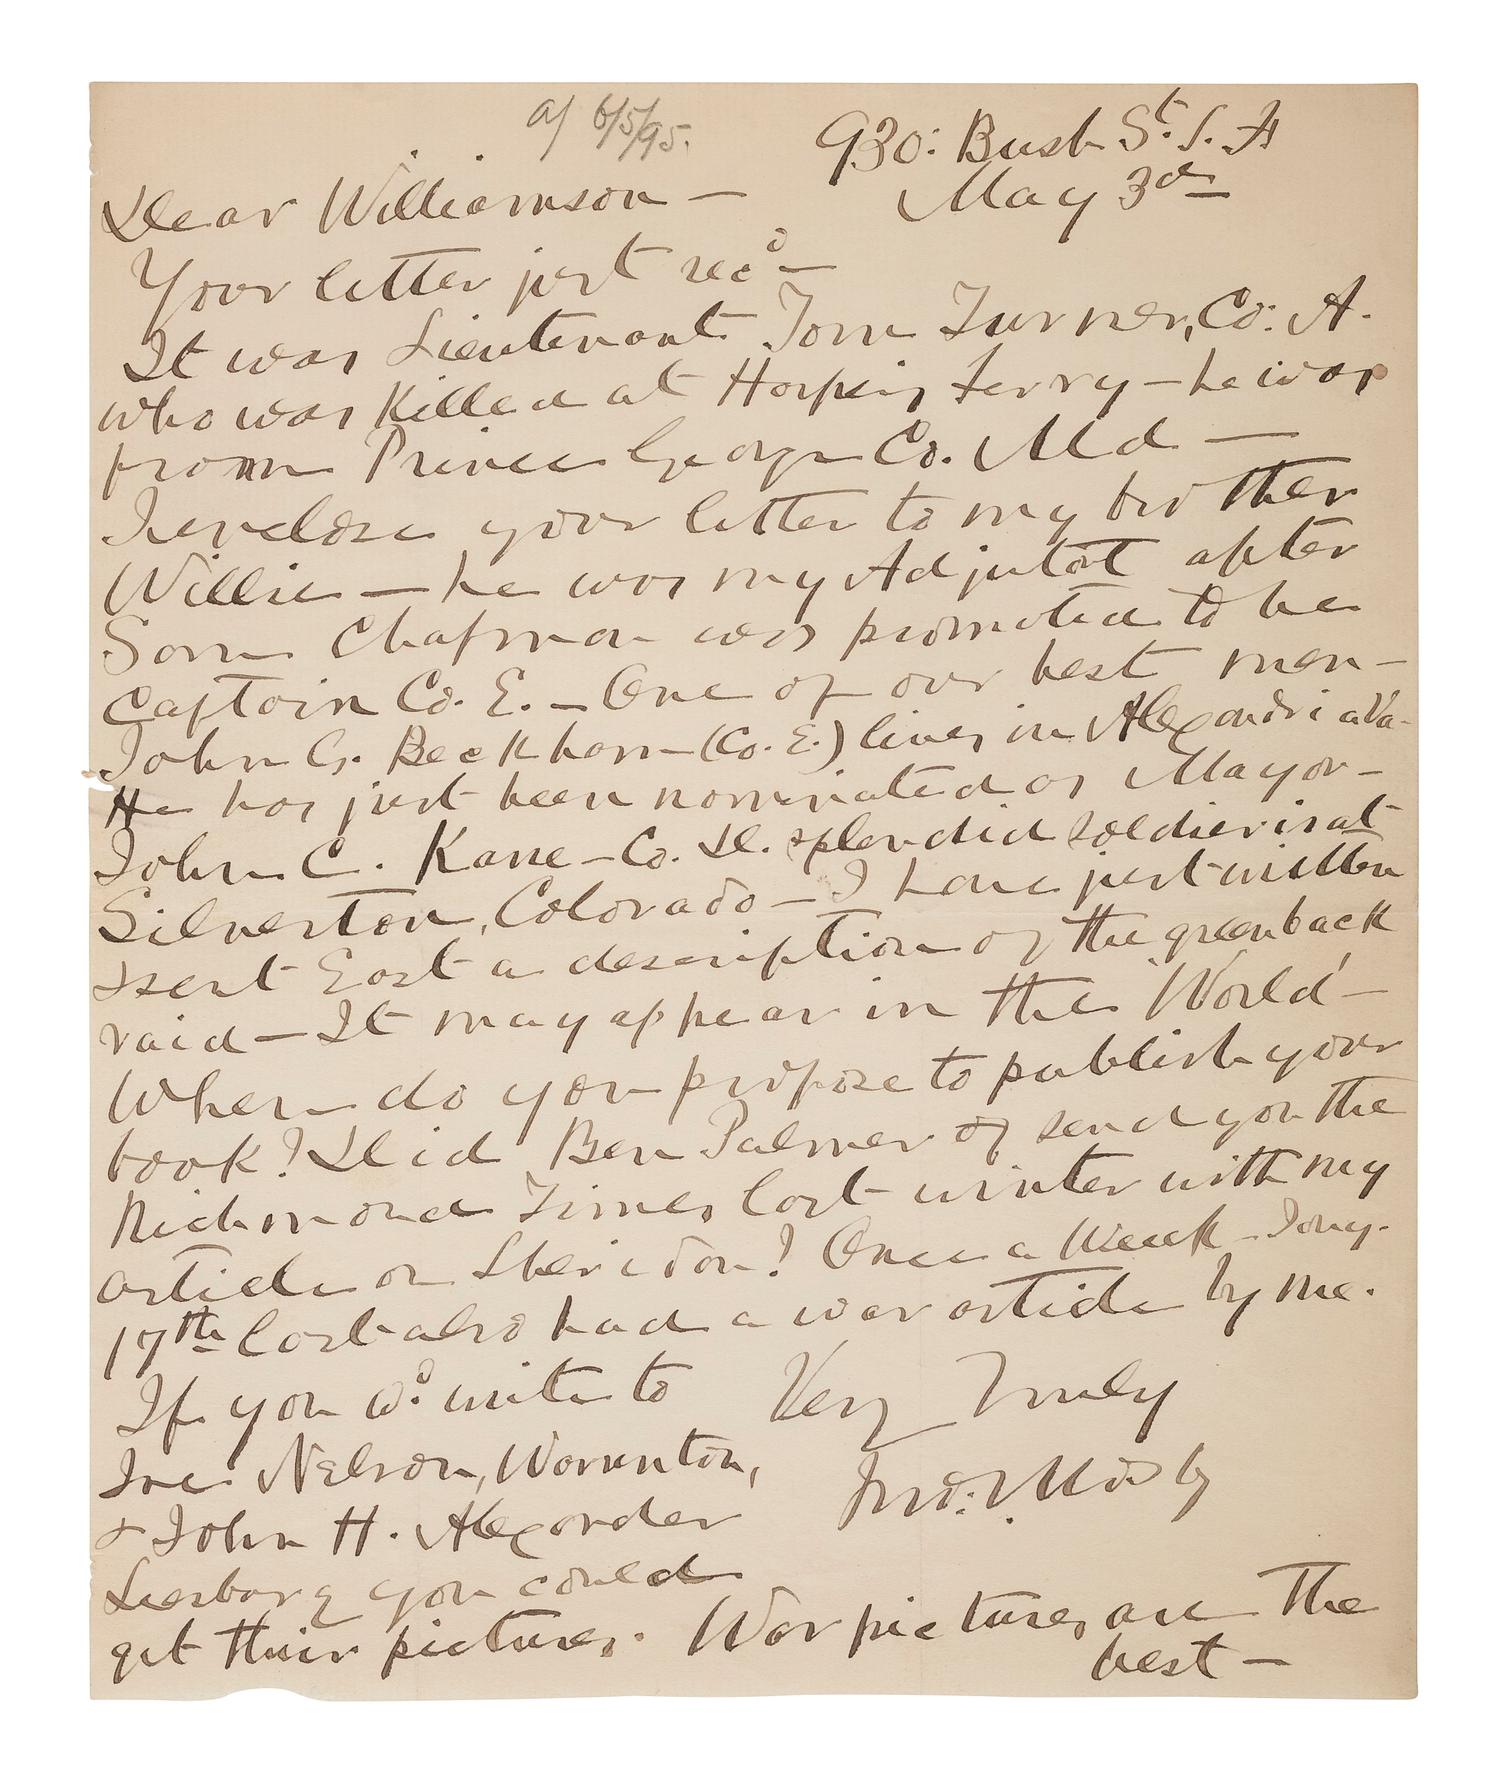 a/ 6/5/95.
930: Bush St. S. F.
May 3d
Dear Williamson —
Your letter just recd —
It was Lieutenant Tom Turner, Co: A.
who was killed at Harpers Ferry — he was
from Prince George Co. Md —
I enclose your letter to my brother
Willie — he was my Adjutant after
Sam Chapman was promoted to be
Captain Co. E. — One of our best men —
John G. Beckham (Co. E.) lives in Alexandria Va —
He has just been nominated as Mayor —
John C. Kane — Co. D. splendid soldier is at
Silverton, Colorado — I have just written
& sent East a description of the greenback
raid — It may appear in the 'World' —
When do you propose to publish your
book? Did Ben Palmer of send you the
Richmond Times last winter with my
article on Sheridan? Once a Week — Jany.
17th last also had a war article by me.
If you wd. write to
Joe Nelson, Warrenton,
& John H. Alexander
Leesburg you could
get their pictures. War pictures are the
best —
Very Truly
Jno: S. Mosby